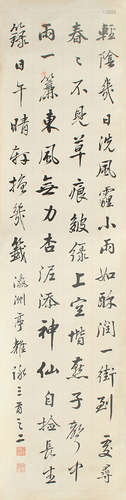 輕陰幾日洗風霾小雨如酥潤一街到處尋
春〻不見草痕皺綠上空階燕子聲中
雨一簾東風無力杏泥添神仙自檢長生
籙日午晴軒掩幾籤 瀛洲亭雜詠三首之二